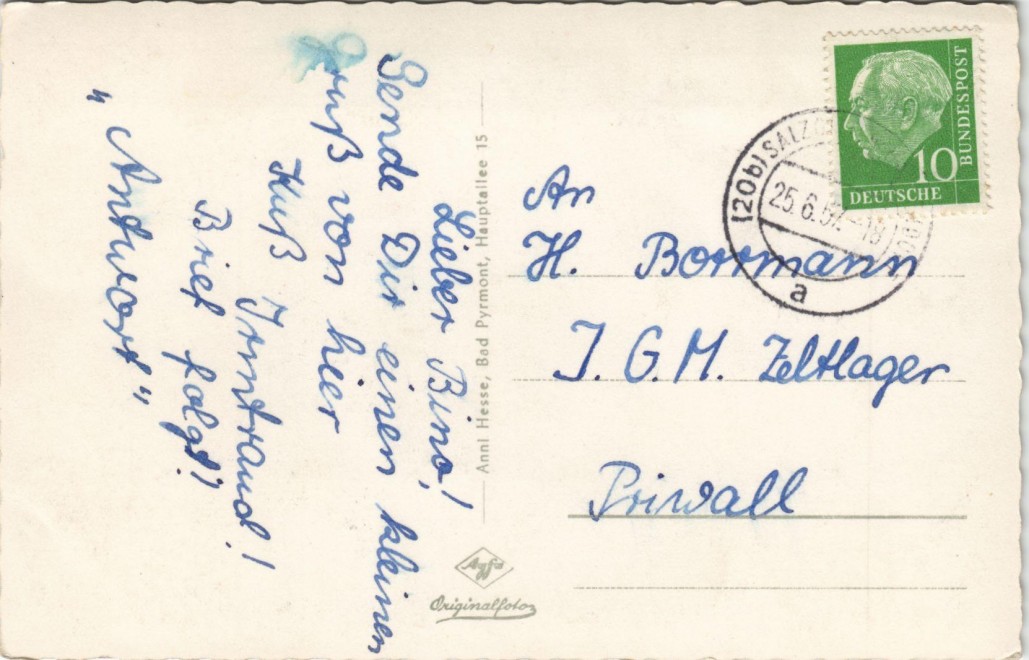 Lieber Bino!
Sende Dir einen kleinen
Gruß von hier
Kuß
Irmtraud!
Brief folgt!
"Antwort"
Annl Hesse, Bad Pyrmont, Hauptallee 15
Agfa
Originalfoto
An
H. Borrmann
J. G. M. Zeltlager
Priwall
(20b) SALZG
25.6.5
-18
a
10
BUNDESPOST
DEUTSCHE